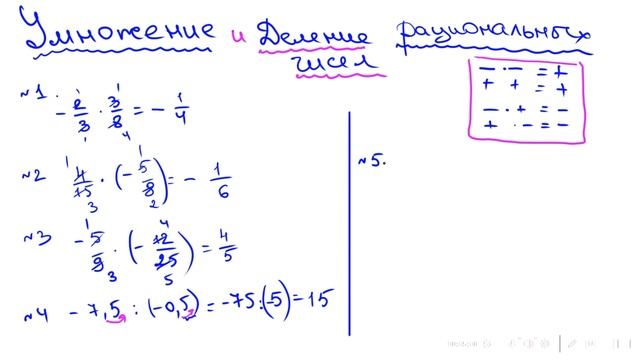 Умножение и Деление рациональных
чисел
− · − = +
+ + = +
− · + = −
+ · − = −
№1. −2/3 · 3/8 = − 1/4
№2 4/15 · (−5/8) = − 1/6
№3 −5/9 · (−12/25) = 4/5
№4 − 7,5 : (−0,5) = −75:(−5) = 15
№5.